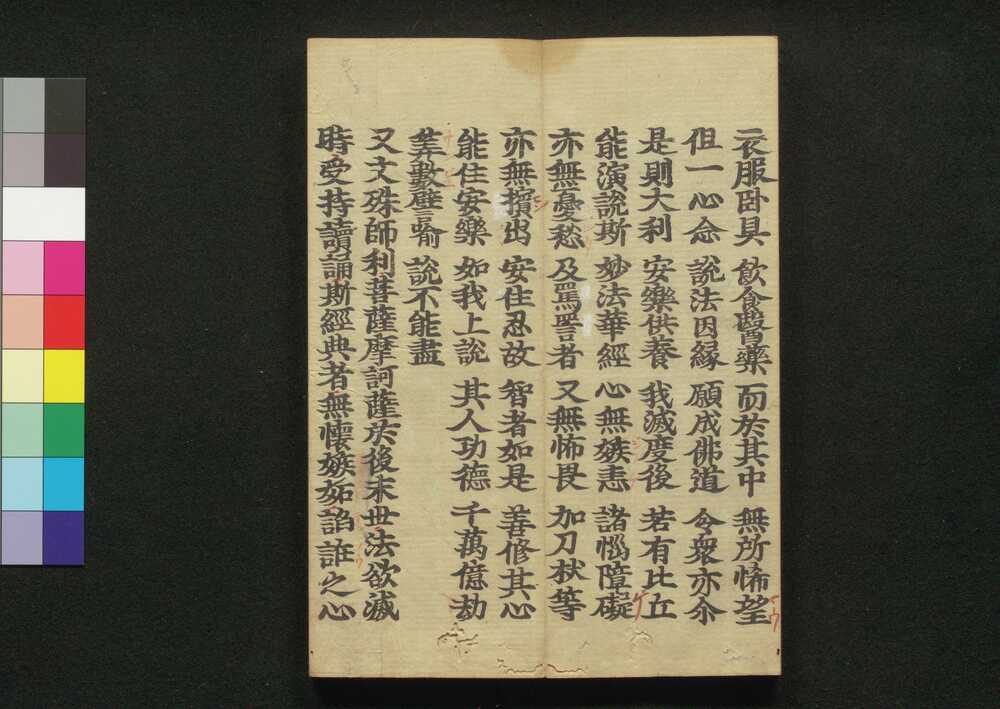 衣服卧具 飲食醫藥 而於其中 無所悕望
但一心念 說法因緣 願成佛道 令衆亦尒
是則大利 安樂供養 我滅度後 若有比丘
能演說斯 妙法華經 心無嫉恚 諸惱障礙
亦無憂愁 及罵詈者 又無怖畏 加刀杖等
亦無擯出 安住忍故 智者如是 善修其心
能住安樂 如我上說 其人功德 千萬億劫
筭數譬喻 說不能盡
又文殊師利菩薩摩訶薩於後末世法欲滅
時受持讀誦斯經典者無懷嫉妬諂誑之心